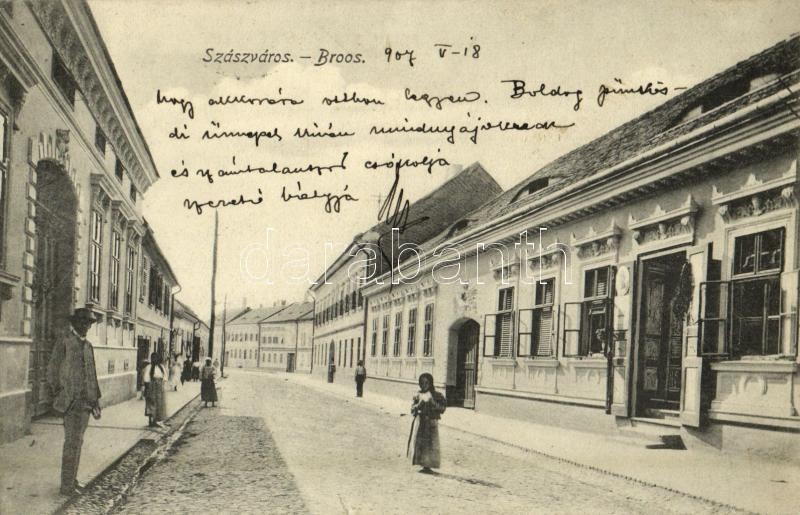 Szászváros. – Broos. 907 V–18
hogy akkorára otthon legyen. Boldog pünkös-
di ünnepet kíván mindnyájoknak
és számtalanszor csókolja
szerető bátyja
darabanth